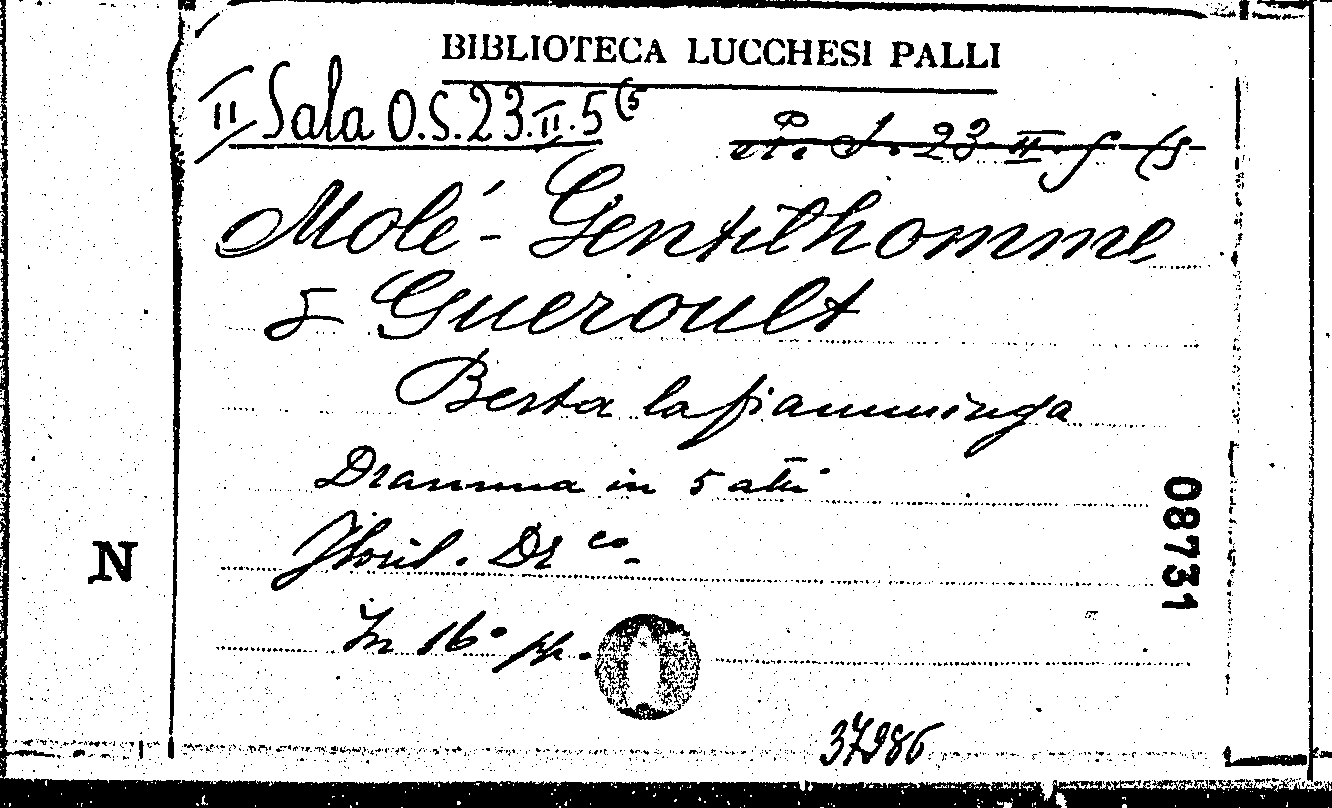 BIBLIOTECA LUCCHESI PALLI
II Sala O.S.23.II.5(5
Molé-Gentilhomme
& Gueroult
Berta la fiamminga
Dramma in 5 atti
Floril. Dr co.
In 16° pp.
N
08731
37986